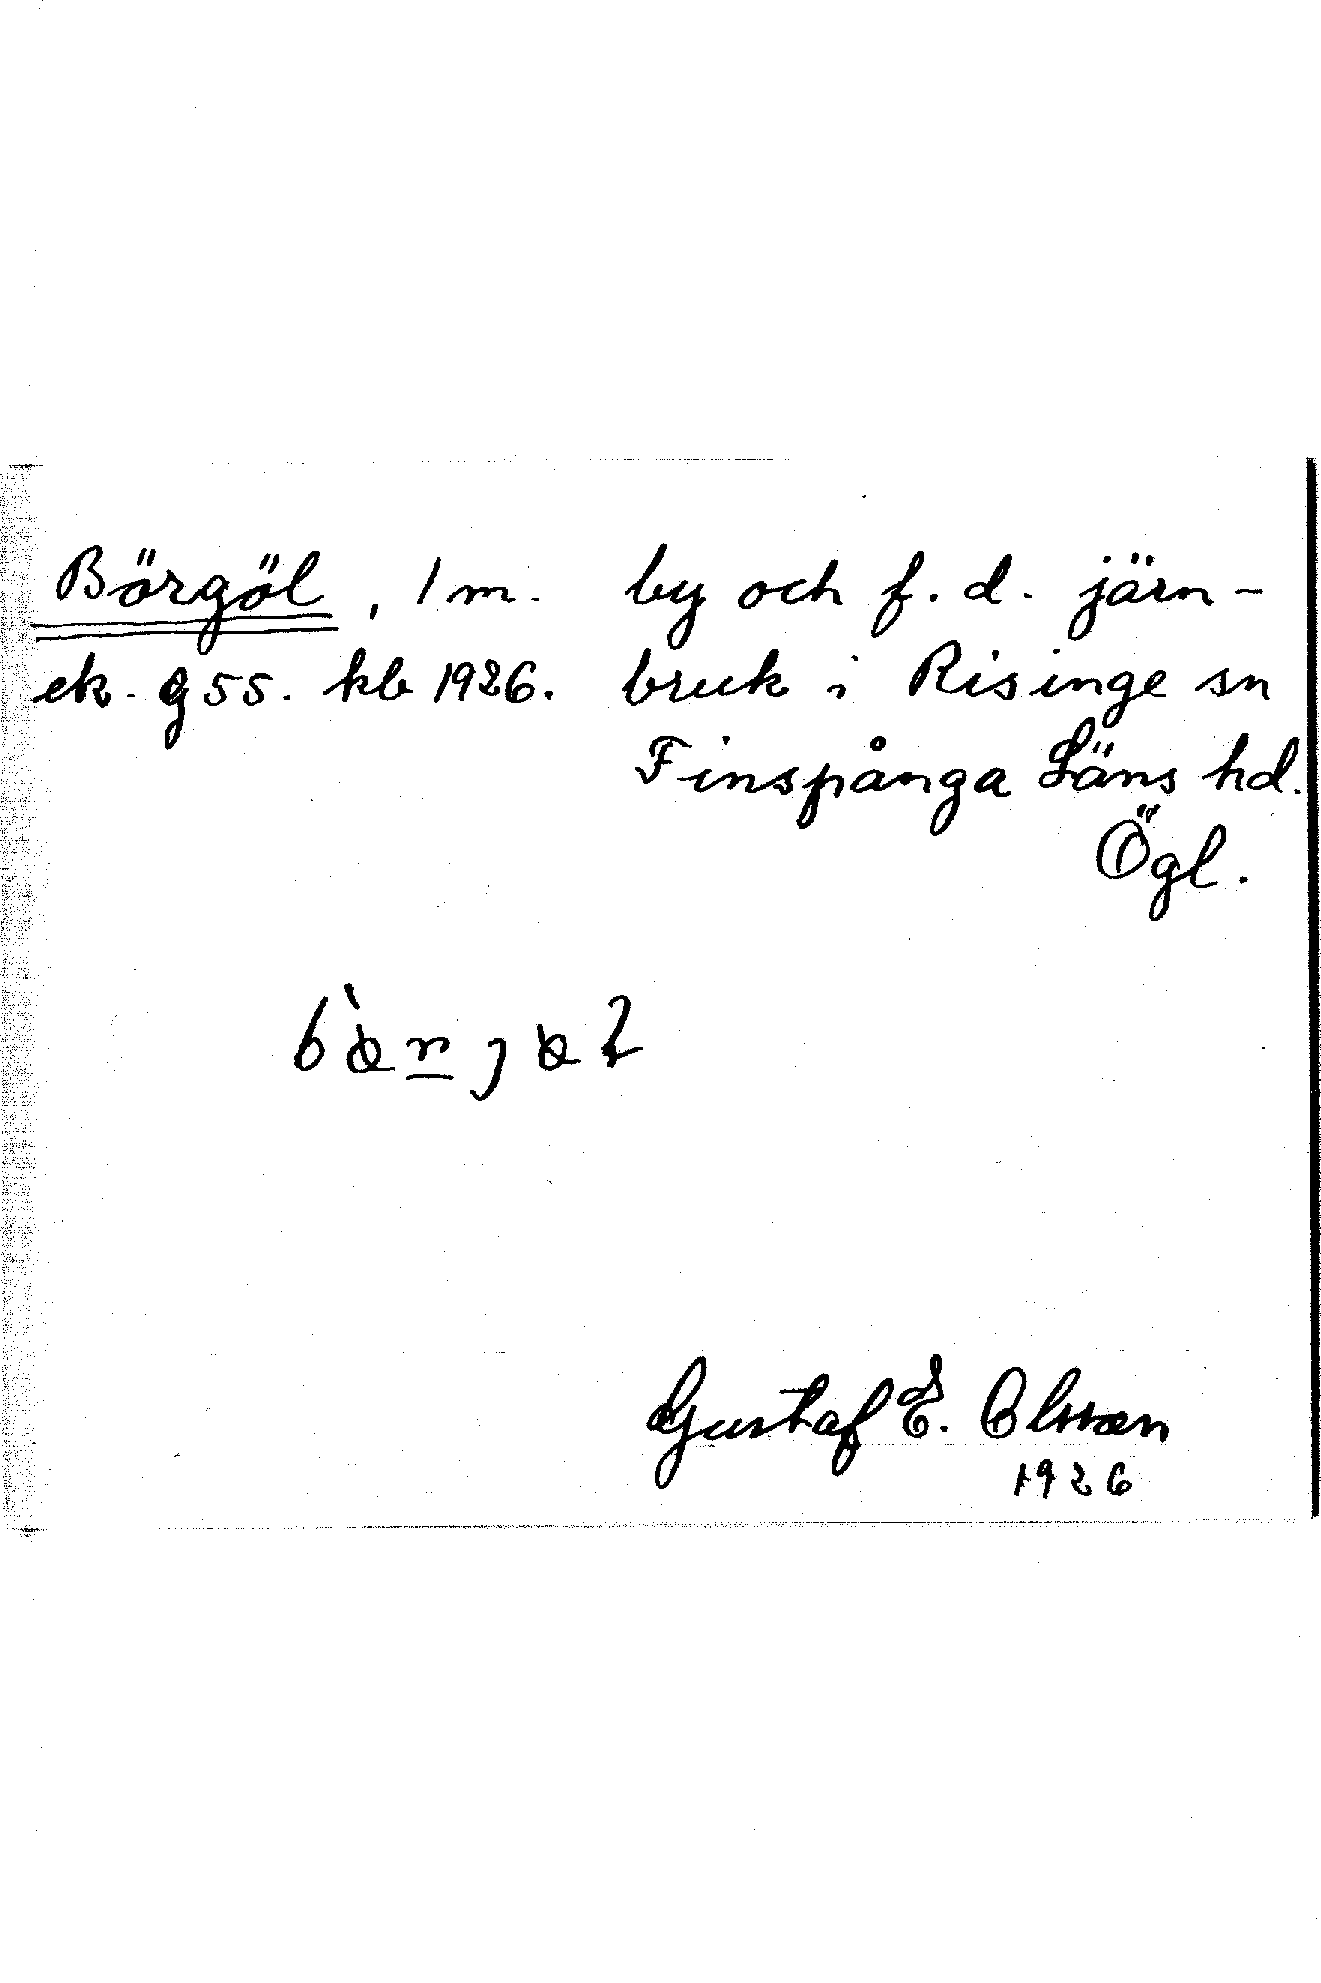 Börgöl, 1 m. by och f. d. järn-
ek. g 55. kb 1926. bruk i Risinge sn
Finspånga Läns hd.
Ögl.
Gustaf E. Olsson
1926